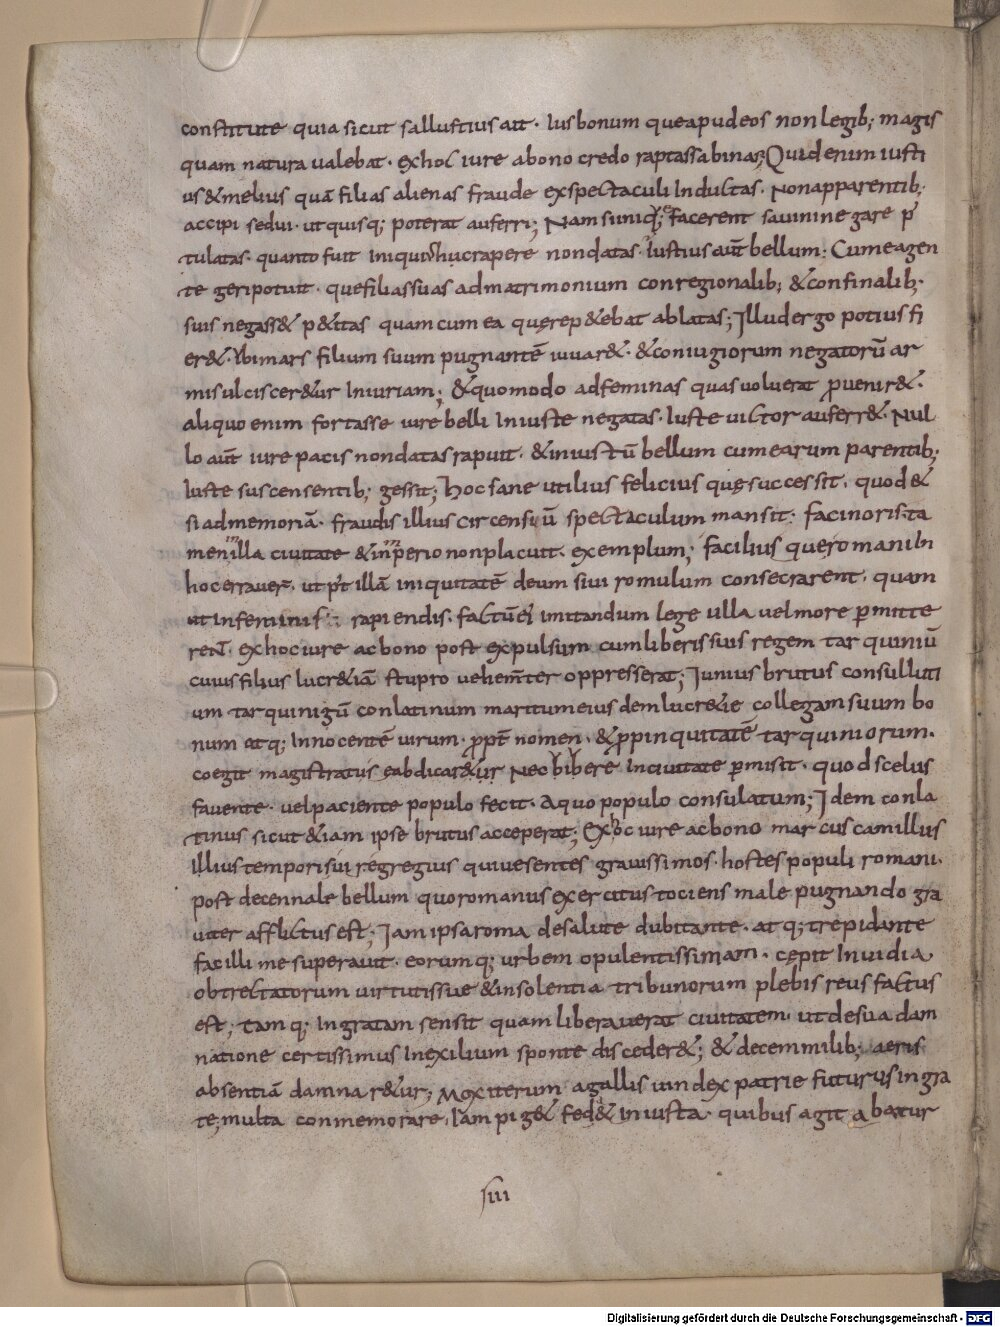 constitute quia sicut sallustius ait· Ius bonum que apud eos non legib; magis
quam natura ualebat· ex hoc iure a bono credo raptas sabinas; Quid enim iusti
us & melius quā filias alienas fraude exspectaculi Inductas· Non a parentib;
accipi sed ui· ut quisq; poterat auferri; Nam si iniq; facerent sauini negare p
tulatas· quanto fuit iniquius huc rapere non datas· Iustius aut bellum· Cum ea gen
te geri potuit· que filias suas ad matrimonium conregionalib; & confinalib;
suis negass& p&itas quam cum ea quę rep&ebat ablatas; Illud ergo potius fi
er&· Ibi mars filium suum pugnantē iuuar&· & coniugiorum negatorū ar
mis ulciscer&ur Iniuriam; & quomodo ad feminas quas uoluerat puenir&·
aliquo enim fortasse iure belli Iniuste negatas· Iuste uictor auferr&· Nul
lo aut iure pacis non datas rapuit· & iniustū bellum cum earum parentib;
Iuste suscensentib; gessit; hoc sane utilius felicius quę successit· quod &
si ad memoriā· fraudis illius circensiū spectaculum mansit· facinoris ta
men in illa ciuitate & inperio non placuit· exemplum; facilius quę romani In
hoc errauer· ut pt illā iniquitatē deum sui romulum consecrarent· quam
ut In feminis rapiendis· factū ei imitandum lege ulla uel more pmitte
rent· ex hoc iure ac bono post expulsum cum liberis suis regem tarquiniū
cuius filius lucr&iā stupro uehemter oppresserat; Iunius brutus consul luti
um tarquinigū conlatinum maritum eiusdem lucr&ie collegam suum bo
num atq; Innocentē uirum· ppt nomen· & ppinquitatē tarquiniorum·
coegit magistratus eabdicar&ur Nec bibere In ciuitate pmisit· quod scelus
fauente· uel paciente populo fecit· A quo populo consulatum; Idem conla
tinus sicut & iam ipse brutus acceperat; Ex hoc iure ac bono marcus camillus
illius temporis uir egregius qui uesentes grauissimos· hostes populi romani·
post decennale bellum quo romanus exercitus tociens male pugnando gra
uiter afflictus est; Iam ipsa roma de salute dubitante· atq; trepidante
facillime superauit· eorumq; urbem opulentissimam· cępit Inuidia
obtrectatorum uirtutis sue & insolentia tribunorum plebis reus factus
est; tamq; Ingratam sensit quam liberauerat ciuitatem· ut de sua dam
natione certissimus In exilium sponte disceder&; & decem milib; aeris
absentiā damnar&ur; Mox iterum a gallis uindex patrie futurus ingra
te; multa conmemorare· Iam pig& fed& iniusta· quibus agitabatur
iii
Digitalisierung gefördert durch die Deutsche Forschungsgemeinschaft - DFG